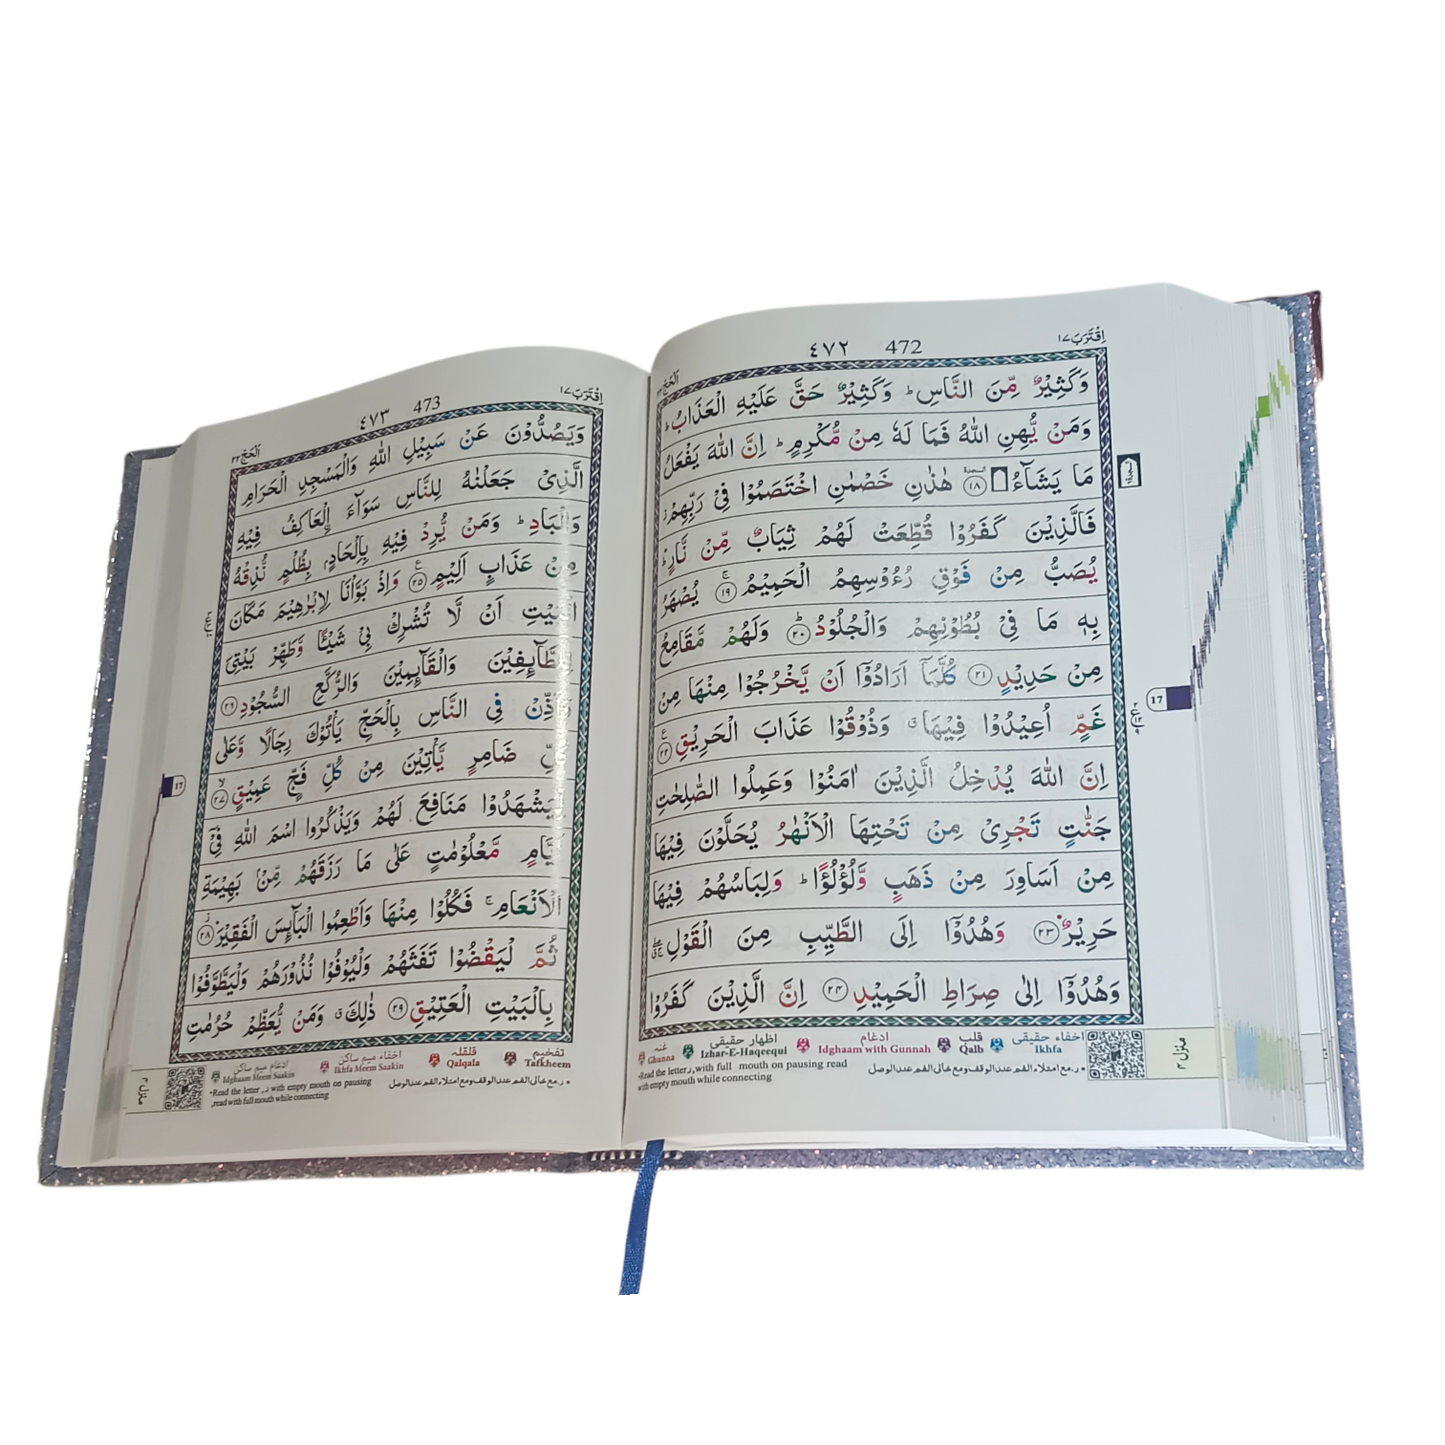 ٤٧٢ 472
اِقْتَرَبَ ١٧
اَلْحَجّ ٢٢
وَكَثِيْرٌ مِّنَ النَّاسِ ؕ وَكَثِيْرٌ حَقَّ عَلَيْهِ الْعَذَابُ ؕ
وَمَنْ يُّهِنِ اللّٰهُ فَمَا لَهٗ مِنْ مُّكْرِمٍ ؕ اِنَّ اللّٰهَ يَفْعَلُ
مَا يَشَآءُ ۩ ﴿١٨﴾ هٰذٰنِ خَصْمٰنِ اخْتَصَمُوْا فِيْ رَبِّهِمْ ؗ
فَالَّذِيْنَ كَفَرُوْا قُطِّعَتْ لَهُمْ ثِيَابٌ مِّنْ نَّارٍ ؕ
يُصَبُّ مِنْ فَوْقِ رُءُوْسِهِمُ الْحَمِيْمُ ۚ ﴿١٩﴾ يُصْهَرُ
بِهٖ مَا فِيْ بُطُوْنِهِمْ وَالْجُلُوْدُ ؕ ﴿٢٠﴾ وَلَهُمْ مَّقَامِعُ
مِنْ حَدِيْدٍ ﴿٢١﴾ كُلَّمَآ اَرَادُوْٓا اَنْ يَّخْرُجُوْا مِنْهَا مِنْ
غَمٍّ اُعِيْدُوْا فِيْهَا ۗ وَذُوْقُوْا عَذَابَ الْحَرِيْقِ ﴿٢٢﴾
اِنَّ اللّٰهَ يُدْخِلُ الَّذِيْنَ اٰمَنُوْا وَعَمِلُوا الصّٰلِحٰتِ
جَنّٰتٍ تَجْرِيْ مِنْ تَحْتِهَا الْاَنْهٰرُ يُحَلَّوْنَ فِيْهَا
مِنْ اَسَاوِرَ مِنْ ذَهَبٍ وَّلُؤْلُؤًا ؕ وَلِبَاسُهُمْ فِيْهَا
حَرِيْرٌ ﴿٢٣﴾ وَهُدُوْٓا اِلَى الطَّيِّبِ مِنَ الْقَوْلِ ۖۚ
وَهُدُوْٓا اِلٰى صِرَاطِ الْحَمِيْدِ ﴿٢٤﴾ اِنَّ الَّذِيْنَ كَفَرُوْا
السجدة
17
اخفاء حقیقی Ikhfa
قلب Qalb
ادغام Idghaam with Gunnah
اظهار حقیقی Izhar-E-Haqeequi
غنه Ghunna
•Read the letter ر,with full mouth on pausing read
with empty mouth while connecting
• ر.مع امتلاء الفم عند الوقف ومع خأل الفم عند الوصل
منزل ٣
٤٧٣ 473
اِقْتَرَبَ ١٧
اَلْحَجّ ٢٢
وَيَصُدُّوْنَ عَنْ سَبِيْلِ اللّٰهِ وَالْمَسْجِدِ الْحَرَامِ
الَّذِيْ جَعَلْنٰهُ لِلنَّاسِ سَوَآءَ اِ۟لْعَاكِفُ فِيْهِ
وَالْبَادِ ؕ وَمَنْ يُّرِدْ فِيْهِ بِاِلْحَادٍۭ بِظُلْمٍ نُّذِقْهُ
مِنْ عَذَابٍ اَلِيْمٍ ﴿٢٥﴾ وَاِذْ بَوَّاْنَا لِاِبْرٰهِيْمَ مَكَانَ
الْبَيْتِ اَنْ لَّا تُشْرِكْ بِيْ شَيْـًٔا وَّطَهِّرْ بَيْتِيَ
لِلطَّآئِفِيْنَ وَالْقَآئِمِيْنَ وَالرُّكَّعِ السُّجُوْدِ ﴿٢٦﴾
وَاَذِّنْ فِي النَّاسِ بِالْحَجِّ يَاْتُوْكَ رِجَالًا وَّعَلٰى
كُلِّ ضَامِرٍ يَّاْتِيْنَ مِنْ كُلِّ فَجٍّ عَمِيْقٍ ۙ ﴿٢٧﴾
لِّيَشْهَدُوْا مَنَافِعَ لَهُمْ وَيَذْكُرُوا اسْمَ اللّٰهِ فِيْٓ
اَيَّامٍ مَّعْلُوْمٰتٍ عَلٰى مَا رَزَقَهُمْ مِّنْۢ بَهِيْمَةِ
الْاَنْعَامِ ۚ فَكُلُوْا مِنْهَا وَاَطْعِمُوا الْبَآئِسَ الْفَقِيْرَ ؗ ﴿٢٨﴾
ثُمَّ لْيَقْضُوْا تَفَثَهُمْ وَلْيُوْفُوْا نُذُوْرَهُمْ وَلْيَطَّوَّفُوْا
بِالْبَيْتِ الْعَتِيْقِ ﴿٢٩﴾ ذٰلِكَ ۗ وَمَنْ يُّعَظِّمْ حُرُمٰتِ
17
تفخیم Tafkheem
قلقله Qalqala
اخفاء میم ساکن Ikhfa Meem Saakin
ادغام میم ساکن Idghaam Meem Saakin
•Read the letter ر, with empty mouth on pausing
,read with full mouth while connecting
• ر.مع خأل الفم عند الوقف ومع امتلاء الفم عند الوصل
منزل ٣